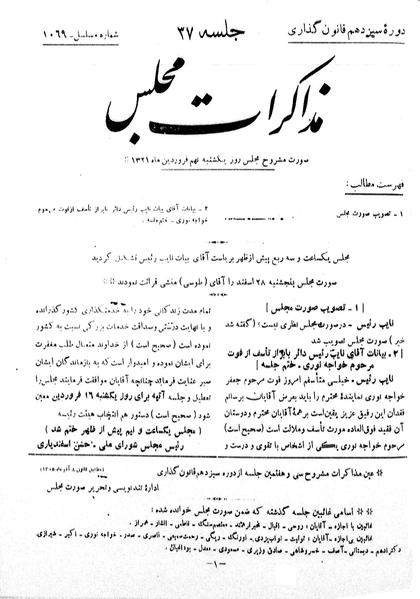 دورۀ سیزدهم قانون گذاری
جلسه ۳۷
شماره مسلسل - ۱۰۶۹
مذاکرات مجلس
صورت مشروح مجلس روز یکشنبه نهم فروردین ماه ۱۳۲۱
فهرست مطالب:
۱ - تصویب صورت مجلس
۲ - بیانات آقای بیات نایب رئیس دائر بابراز تأسف از فوت مرحوم
خواجه نوری - ختم جلسه
مجلس یکساعت و سه ربع پیش از ظهر بریاست آقای بیات نایب رئیس تشکیل گردید
صورت مجلس پنجشنبه ۲۸ اسفند را آقای (طوسی) منشی قرائت نمودند
[ ۱ - تصویب صورت مجلس ]
نایب رئیس - در صورت مجلس نظری نیست؟ (گفته شد
خیر) صورت مجلس تصویب شد
[ ۲ - بیانات آقای نایب رئیس دائر بابراز تأسف از فوت
مرحوم خواجه نوری - ختم جلسه ]
نایب رئیس - خیلی متأسفم امروز فوت مرحوم جعفر
خواجه نوری نمایندۀ محترم را باید بعرض آقایان برسانم
فقدان این رفیق عزیز یقین است بر همۀ آقایان محترم و دوستان
آن فقید فوق‌العاده مورث تأسف و ملالت است (صحیح است)
مرحوم خواجه نوری یکی از اشخاص با تقوی و درست و
تمام مدت زندگانی خود را به خدمتگذاری کشور گذرانده
و با نهایت درستی و صداقت خدمات بزرگی نسبت به کشور
نموده است (صحیح است) از خداوند متعال طلب مغفرت
برای ایشان نموده و امیدوار است که به بازماندگان ایشان
صبر عنایت فرماید چنانچه آقایان موافقت فرمایند مجلس را
تعطیل و جلسه آتیه برای روز یکشنبه ۱۶ فروردین معین
شود (صحیح است) دستور هم انتخاب هیئت رئیسه
(مجلس یکساعت و نیم پیش از ظهر ختم شد)
رئیس مجلس شورای ملی - حسن اسفندیاری
عین مذاکرات مشروح سی و هفتمین جلسه از دوره سیزدهم قانون گذاری
ادارۀ تندنویسی و تحریر صورت مجلس
اسامی غائبین جلسه گذشته که ضمن صورت مجلس خوانده شده: